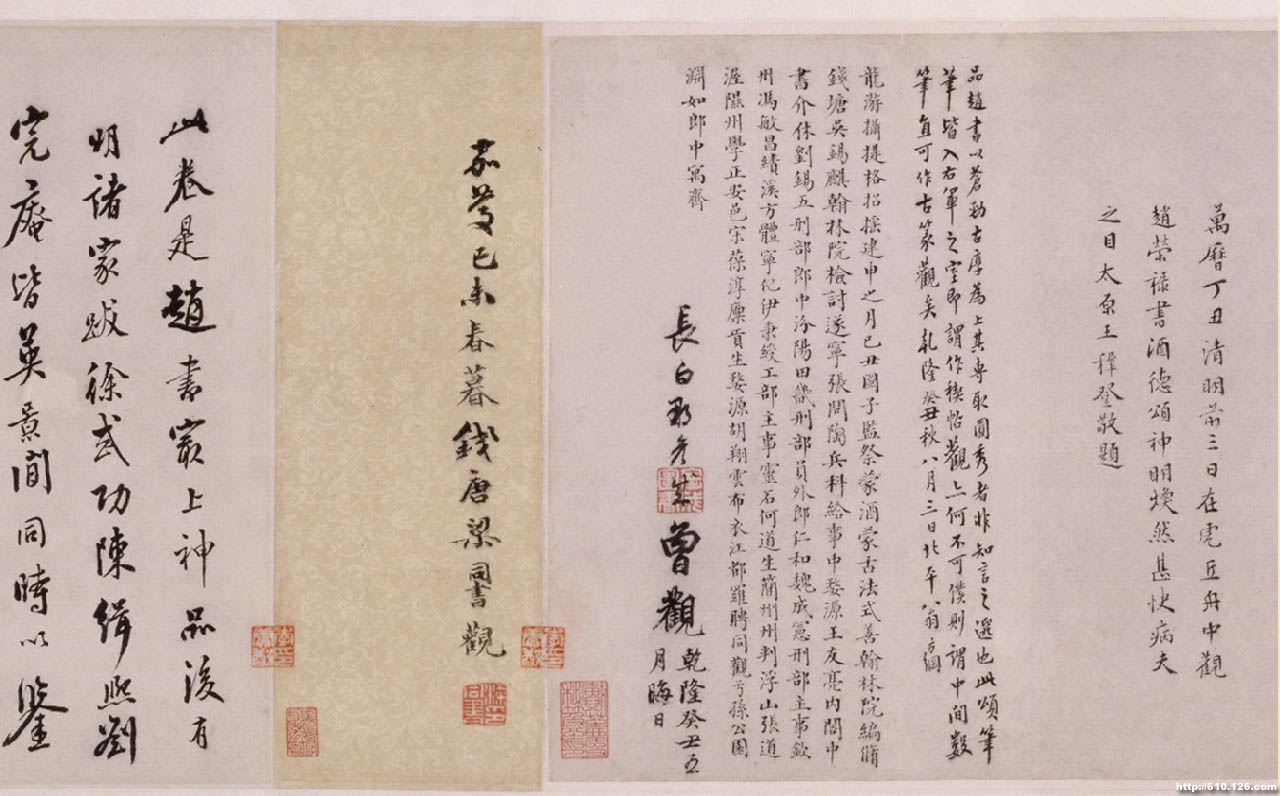 萬曆丁丑清明前三日在虎丘舟中觀
趙榮祿書酒德頌神明煥然甚快病夫
之目太原王穉登敬題
品趙書以蒼勁古厚為上其專取圓秀者非知言之選也此頌筆
筆皆入右軍之室即謂作稧帖觀亦何不可僕則謂中間數
筆直可作古篆觀矣乾隆癸丑秋八月三日北平八翁方綱
龍游攝提格招搖建申之月己丑國子監祭酒蒙古法式善翰林院編脩
錢塘吳錫麒翰林院檢討遂寧張問陶兵科給事中婺源王友亮內閣中
書介休劉錫五刑部郎中汾陽田畿刑部員外郎仁和魏成憲刑部主事欽
州馮敏昌績溪方體寧化伊秉綬工部主事靈石何道生蘭州州判浮山張道
渥隰州學正安邑宋葆淳廩貢生婺源胡翔雲布衣江都羅聘同觀于孫公園
淵如郎中寓齋
長白
曾觀
乾隆癸丑五
月晦日
嘉慶己未春暮錢唐梁同書觀
此卷是趙書最上神品後有
明諸家跋徐武功陳緝熙劉
完庵皆英景間同時以鑒
http://610.126.com